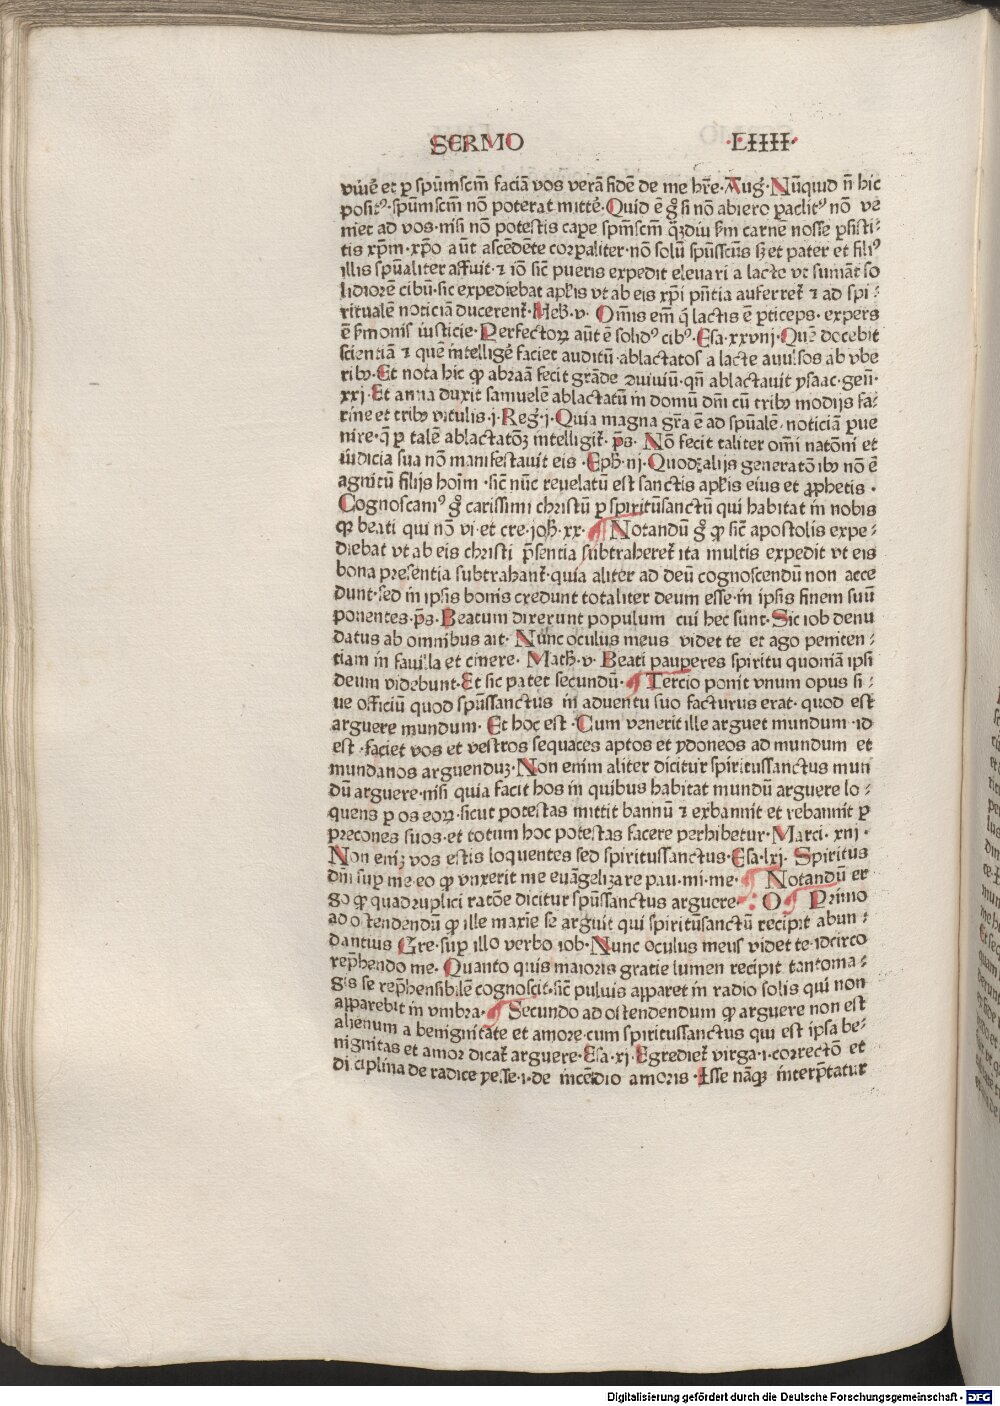 SERMO ·LIIII·
viuẽ et p spũmscm̃ faciã vos verã fidẽ de me hr̃e·Aug̃·Nũquid ñ hic
posit⁹·spũmscm̃ nõ poterat mittẽ·Quid ẽ g̊ si nõ abiero paclit⁹ nõ ve
niet ad vos·nisi nõ potestis cape spm̃scm̃ q̃ȝdiu ẜm carnẽ nosse ꝑsisti⸗
tis xp̃m·xp̃o aũt ascẽdẽte corꝑaliter·nõ solũ spũsscũs sȝ et pater et fili⁹
illis spũaliter affuit·⁊ iõ sic̃ pueris expedit eleuari a lacte vt sumãt so
lidiorẽ cibũ·sic expediebat apl̃is vt ab eis xp̃i pñtia auferret̃ ⁊ ad spi⸗
ritualẽ noticiã ducerent̃·Heb̃·v· Om̃is em̃ q̃ lactis ẽ ꝑticeps·expers
ẽ ẜmonis iusticie·Perfectoꝝ aũt ẽ solid⁹ cib⁹·Esa·xxvııj·Quẽ docebit
scientiã ⁊ quẽ intelligẽ faciet auditũ·ablactatos a lacte auulsos ab vbe
ribꝰ·Et nota hic ꝙ abraã fecit grãde ɔuiuiũ·qñ ablactauit ysaac·geñ·
xxj·Et anna duxit samuelẽ ablactatũ in domũ dñi cũ tribꝰ modijs fa⸗
rine et tribꝰ vitulis·j·Reg̃·j·Quia magna gr̃a ẽ ad spũalẽ·noticiã ꝑue
nire·q̃ ꝑ talẽ ablactatõȝ intelligit̃·p̃s· Nõ fecit taliter om̃i natõni et
iudicia sua nõ manifestauit eis·Eph̃·iij·Quodȝ alijs generatõibꝰ nõ ẽ
agnitũ filijs hoĩm·sic̃ nũc reuelatũ est sanctis apl̃is eius et ꝓphetis·
Cognoscam⁹ g̊ carissimi christũ ꝑ spiritũsanctũ qui habitat in nobis
qꝛ beati qui nõ vi·et cre·joh̃·xx·¶ Notandũ g̊ ꝙ sic̃ apostolis expe⸗
diebat vt ab eis christi p̃sentia subtraheret̃ ita multis expedit vt eis
bona presentia subtrahant̃·quia aliter ad deũ cognoscendũ non acce
dunt·sed in ipsis bonis credunt totaliter deum esse·in ipsis finem suũ
ponentes·p̃s·Beatum dixerunt populum cui hec sunt·Sic iob denu
datus ab omnibus ait· Nunc oculus meus videt te et ago peniten⸗
tiam in fauilla et cinere· Math̃·v· Beati pauperes spiritu quoniã ipsi
deum videbunt·Et sic patet secundũ·¶Tercio ponit vnum opus si⸗
ue officiũ quod spũssanctus in aduentu suo facturus erat· quod est
arguere mundum· Et hoc est ·Cum venerit ille arguet mundum ·id
est ·faciet vos et vestros sequaces aptos et ydoneos ad mundum et
mundanos arguenduȝ·Non enim aliter dicitur spiritussanctus mun
dũ arguere·nisi quia facit hos in quibus habitat mundũ arguere lo⸗
quens ꝑ os eoꝝ·sicut potestas mittit bannũ ⁊ exbannit et rebannit ꝑ
precones suos·et totum hoc potestas facere perhibetur·Marci·xııj·
Non eniȝ vos estis loquentes sed spiritussanctus·Esa·lxj· Spiritus
dñi suꝑ me·eo ꝙ vnxerit me euãgelizare pau·mi·me· ¶ Notandũ er
go ꝙ quadruplici ratõe dicitur spũssanctus arguere· O ¶ Primo
ad ostendendũ ꝙ ille maxĩe se arguit qui spiritũsanctũ recipit abun⸗
dantius Gre·suꝑ illo verbo iob·Nunc oculus meus videt te·idcirco
rep̃hendo me· Quanto quis maioris gratie lumen recipit tantoma⸗
gis se rep̃hensibilẽ cognoscit·sic̃ puluis apparet in radio solis qui non
apparebit in vmbra·¶Secundo ad ostendendum ꝙ arguere non est
alienum a benignitate et amore·cum spiritussanctus qui est ipsa be⸗
nignitas et amor dicat̃ arguere·Esa·xj·Egrediet̃ virga·i·correctõ et
disciplina de radice yesse·i·de incẽdio amoris ·Isse nãqꝫ interp̃tatur
Digitalisierung gefördert durch die Deutsche Forschungsgemeinschaft · DFG